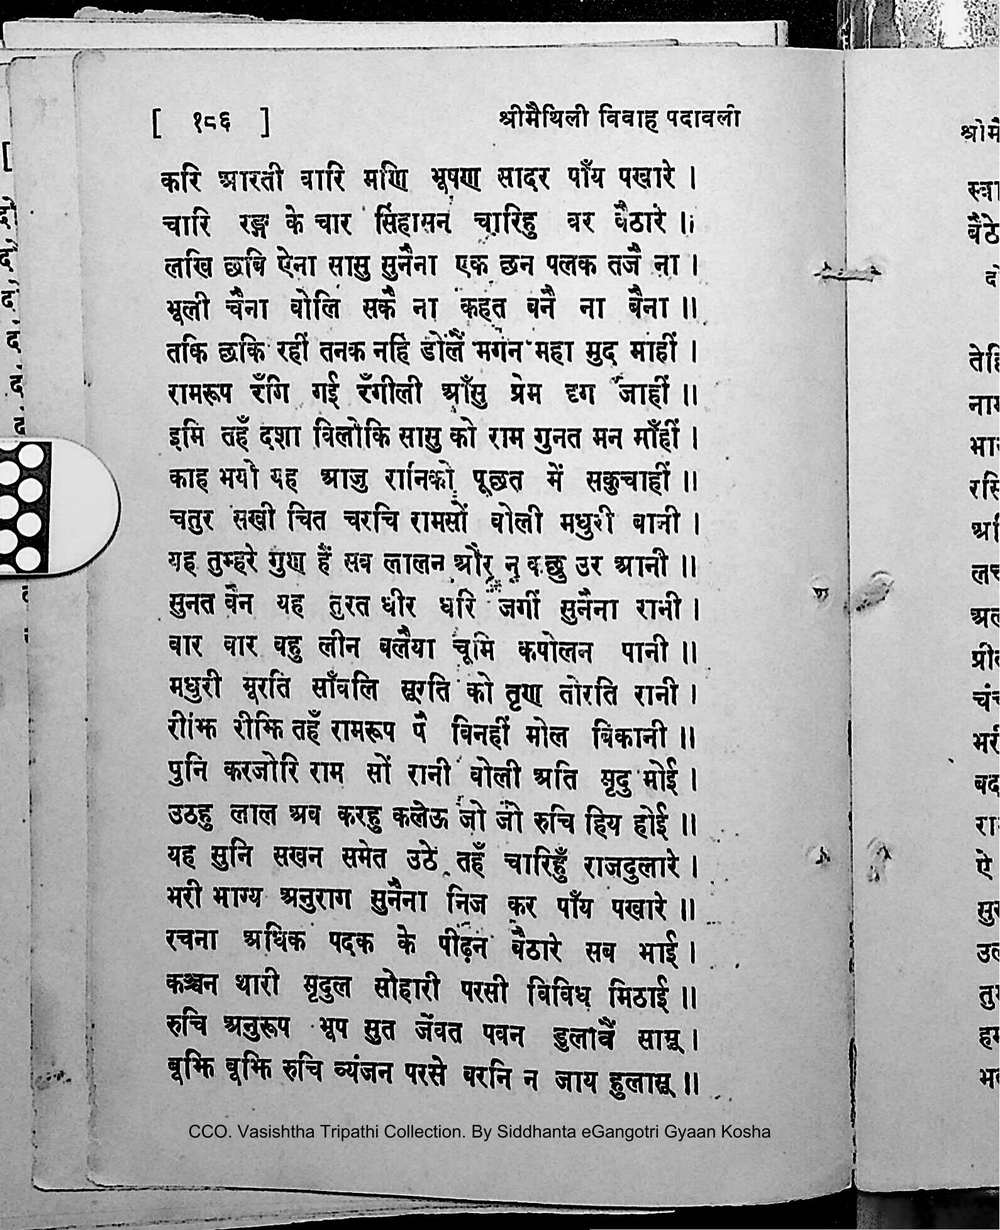 [ १८६ ] श्रीमैथिली विवाह पदावली
करि आरती वारि मणि भूषण सादर पाँय पखारे ।
चारि रङ्ग के चार सिंहासन चारिहु वर बैठारे ।।
लखि छबि ऐना सासु सुनैना एक छन पलक तजै ना ।
भूली चैना बोलि सकै ना कहत बनै ना बैना ।।
तकि छकि रहीं तनक नहिं डोलैं मगन महा मुद माहीं ।
रामरूप रँगि गई रँगीली आँसु प्रेम दृग जाहीं ।।
इमि तहँ दशा विलोकि सासु को राम गुनत मन माँहीं ।
काह भयो यह आजु रानिको पूछत में सकुचाहीं ।।
चतुर सखी चित चरचि रामसों बोली मधुरी बानी ।
यह तुम्हरे गुण हैं सब लालन और न कछु उर आनी ।।
सुनत बैन यह तुरत धीर धरि जगीं सुनैना रानी ।
बार बार बहु लीन बलैया चूमि कपोलन पानी ।।
मधुरी मूरति साँवलि सूरति को तृण तोरति रानी ।
रीझि रीझि तहँ रामरूप पै बिनहीं मोल बिकानी ।।
पुनि करजोरि राम सों रानी बोली अति मृदु मोई ।
उठहु लाल अब करहु कलेऊ जो जो रुचि हिय होई ।।
यह सुनि सखन समेत उठे तहँ चारिहुँ राजदुलारे ।
भरी भाग्य अनुराग सुनैना निज कर पाँय पखारे ।।
रचना अधिक पदक के पीढ़न बैठारे सब भाई ।
कञ्चन थारी मृदुल सोहारी परसी विविध मिठाई ।।
रुचि अनुरूप भूप सुत जेंवत पवन डुलावैं सासू ।
बूझि बूझि रुचि व्यंजन परसे वरनि न जाय हुलासू ।।
CCO. Vasishtha Tripathi Collection. By Siddhanta eGangotri Gyaan Kosha